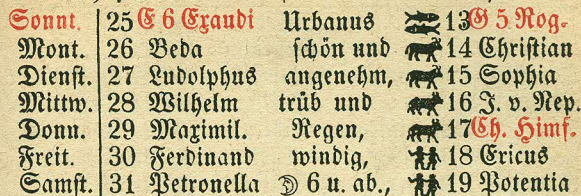 Sonnt. 25 E 6 Exaudi Urbanus 13 G 5 Rog-
Mont. 26 Beda schön und 14 Christian
Dienst. 27 Ludolphus angenehm, 15 Sophia
Mittw. 28 Wilhelm trüb und 16 J. v. Nep.
Donn. 29 Maximil. Regen, 17 Ch. Himf.
Freit. 30 Ferdinand windig, 18 Ericus
Samst. 31 Petronella ☽ 6 u. ab., 19 Potentia